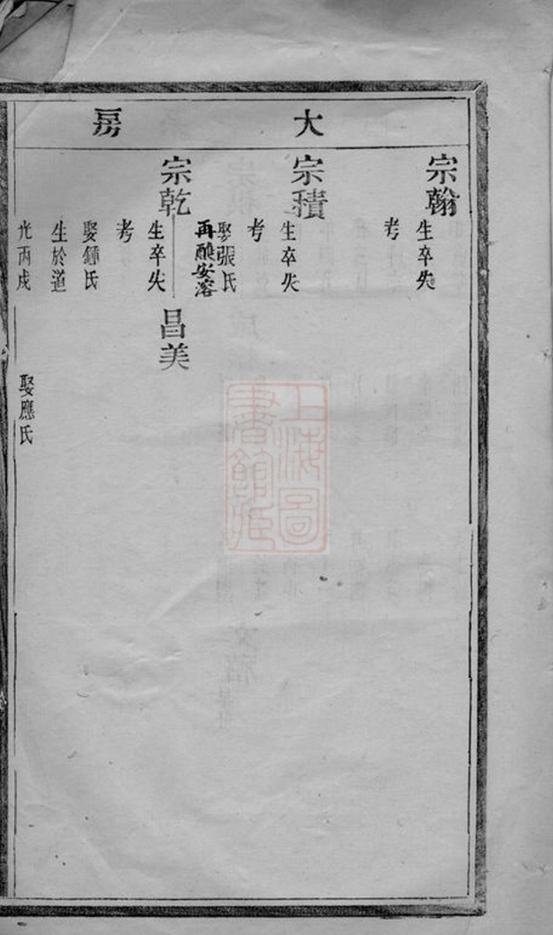 大房
宗翰
生卒失
考
宗積
生卒失
考
娶張氏
再醮安溶
宗乾
昌美
生卒失
考
娶鍾氏
生於道
光丙戌
娶應氏
上海圖
書館藏